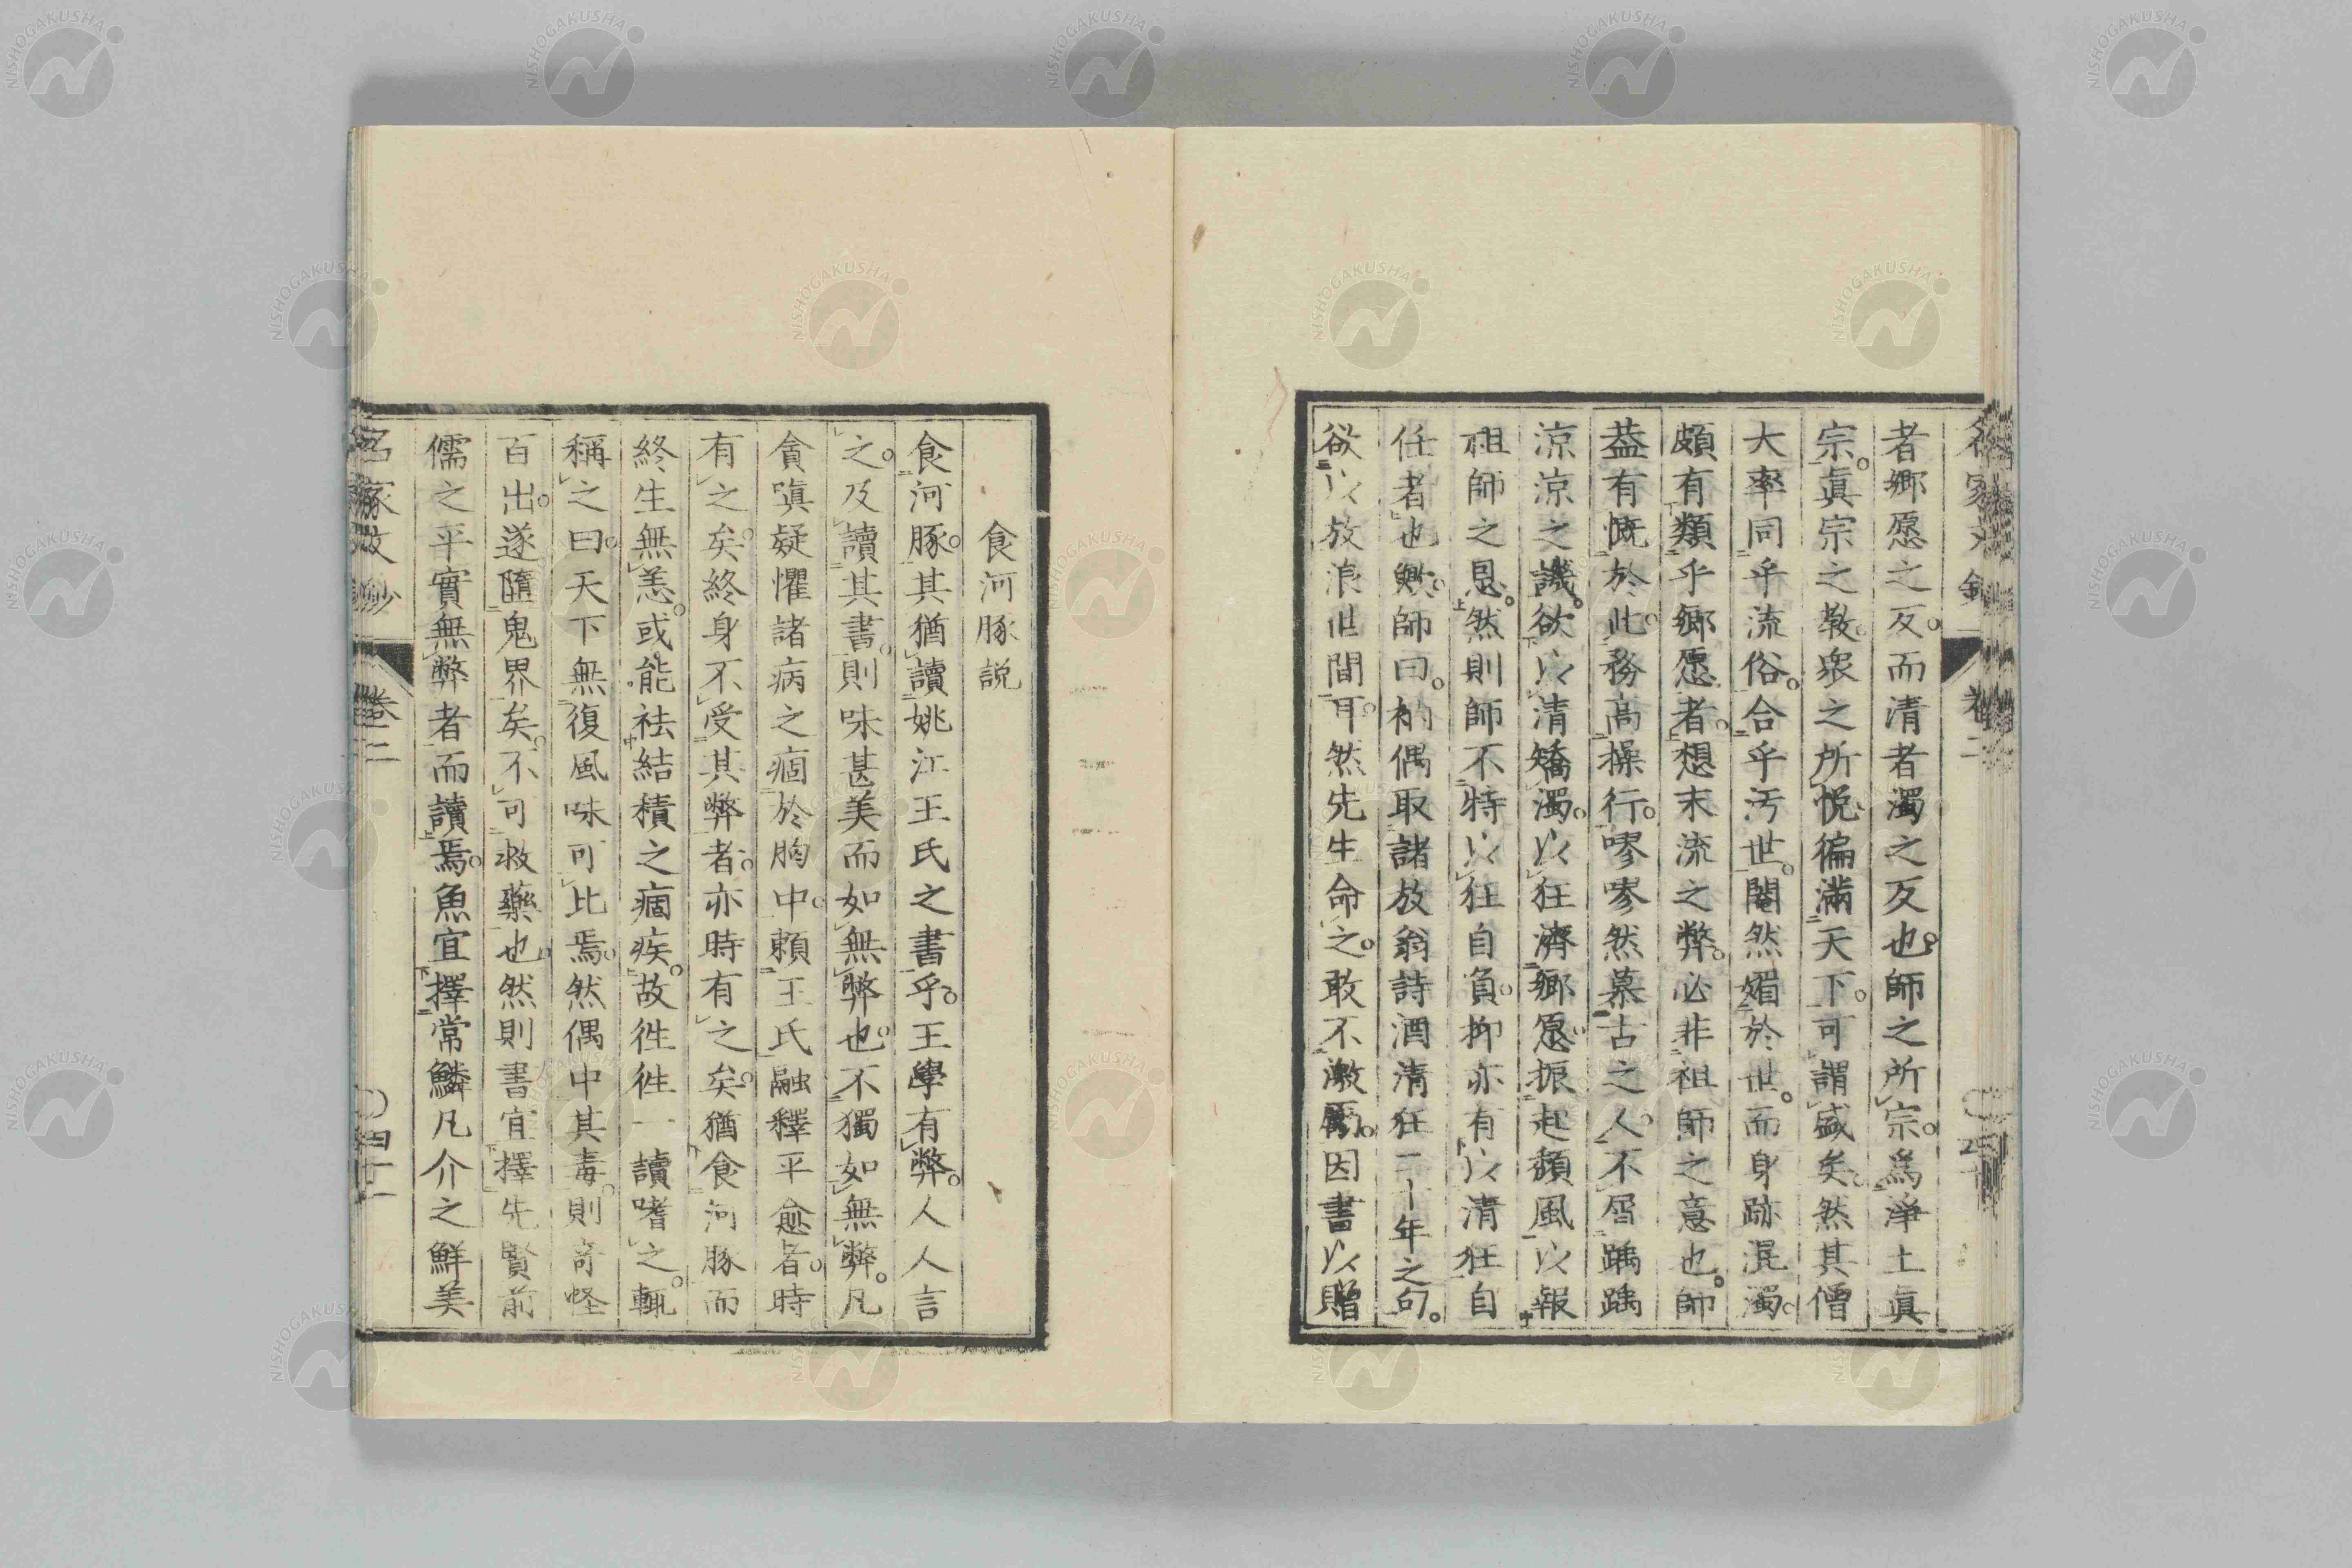 者鄉愿之反而清者濁之反也師之所宗爲淨土眞
宗眞宗之敎衆之所悅徧滿天下可謂盛矣然其僧
大率同乎流俗合乎汚世閹然媚於世而身跡混濁
頗有類乎鄉愿者想末流之弊必非祖師之意也師
葢有慨於此務高操行嘐嘐然慕古之人不屑踽踽
涼涼之譏欲以清矯濁以狂濟鄉愿振起頽風以報
祖師之恩然則師不特以狂自負抑亦有以清狂自
任者也歟師曰衲偶取諸放翁詩酒清狂二十年之句
欲以放浪世間耳然先生命之敢不激厲因書以贈
食河豚説
食河豚其猶讀姚江王氏之書乎王學有弊人人言
之及讀其書則味甚美而如無弊也不獨如無弊凡
貪嗔疑懼諸病之痼於胸中賴王氏融釋平愈者時
有之矣終身不受其弊者亦時有之矣猶食河豚而
終生無恙或能祛結積之痼疾故徃徃一讀嗜之輒
稱之曰天下無復風味可比焉然偶中其毒則奇怪
百出遂隨鬼界矣不可救藥也然則書宜擇先賢前
儒之平實無弊者而讀焉魚宜擇常鱗凡介之鮮美
名家文鈔
卷二
〇四十二
NISHOGAKUSHA